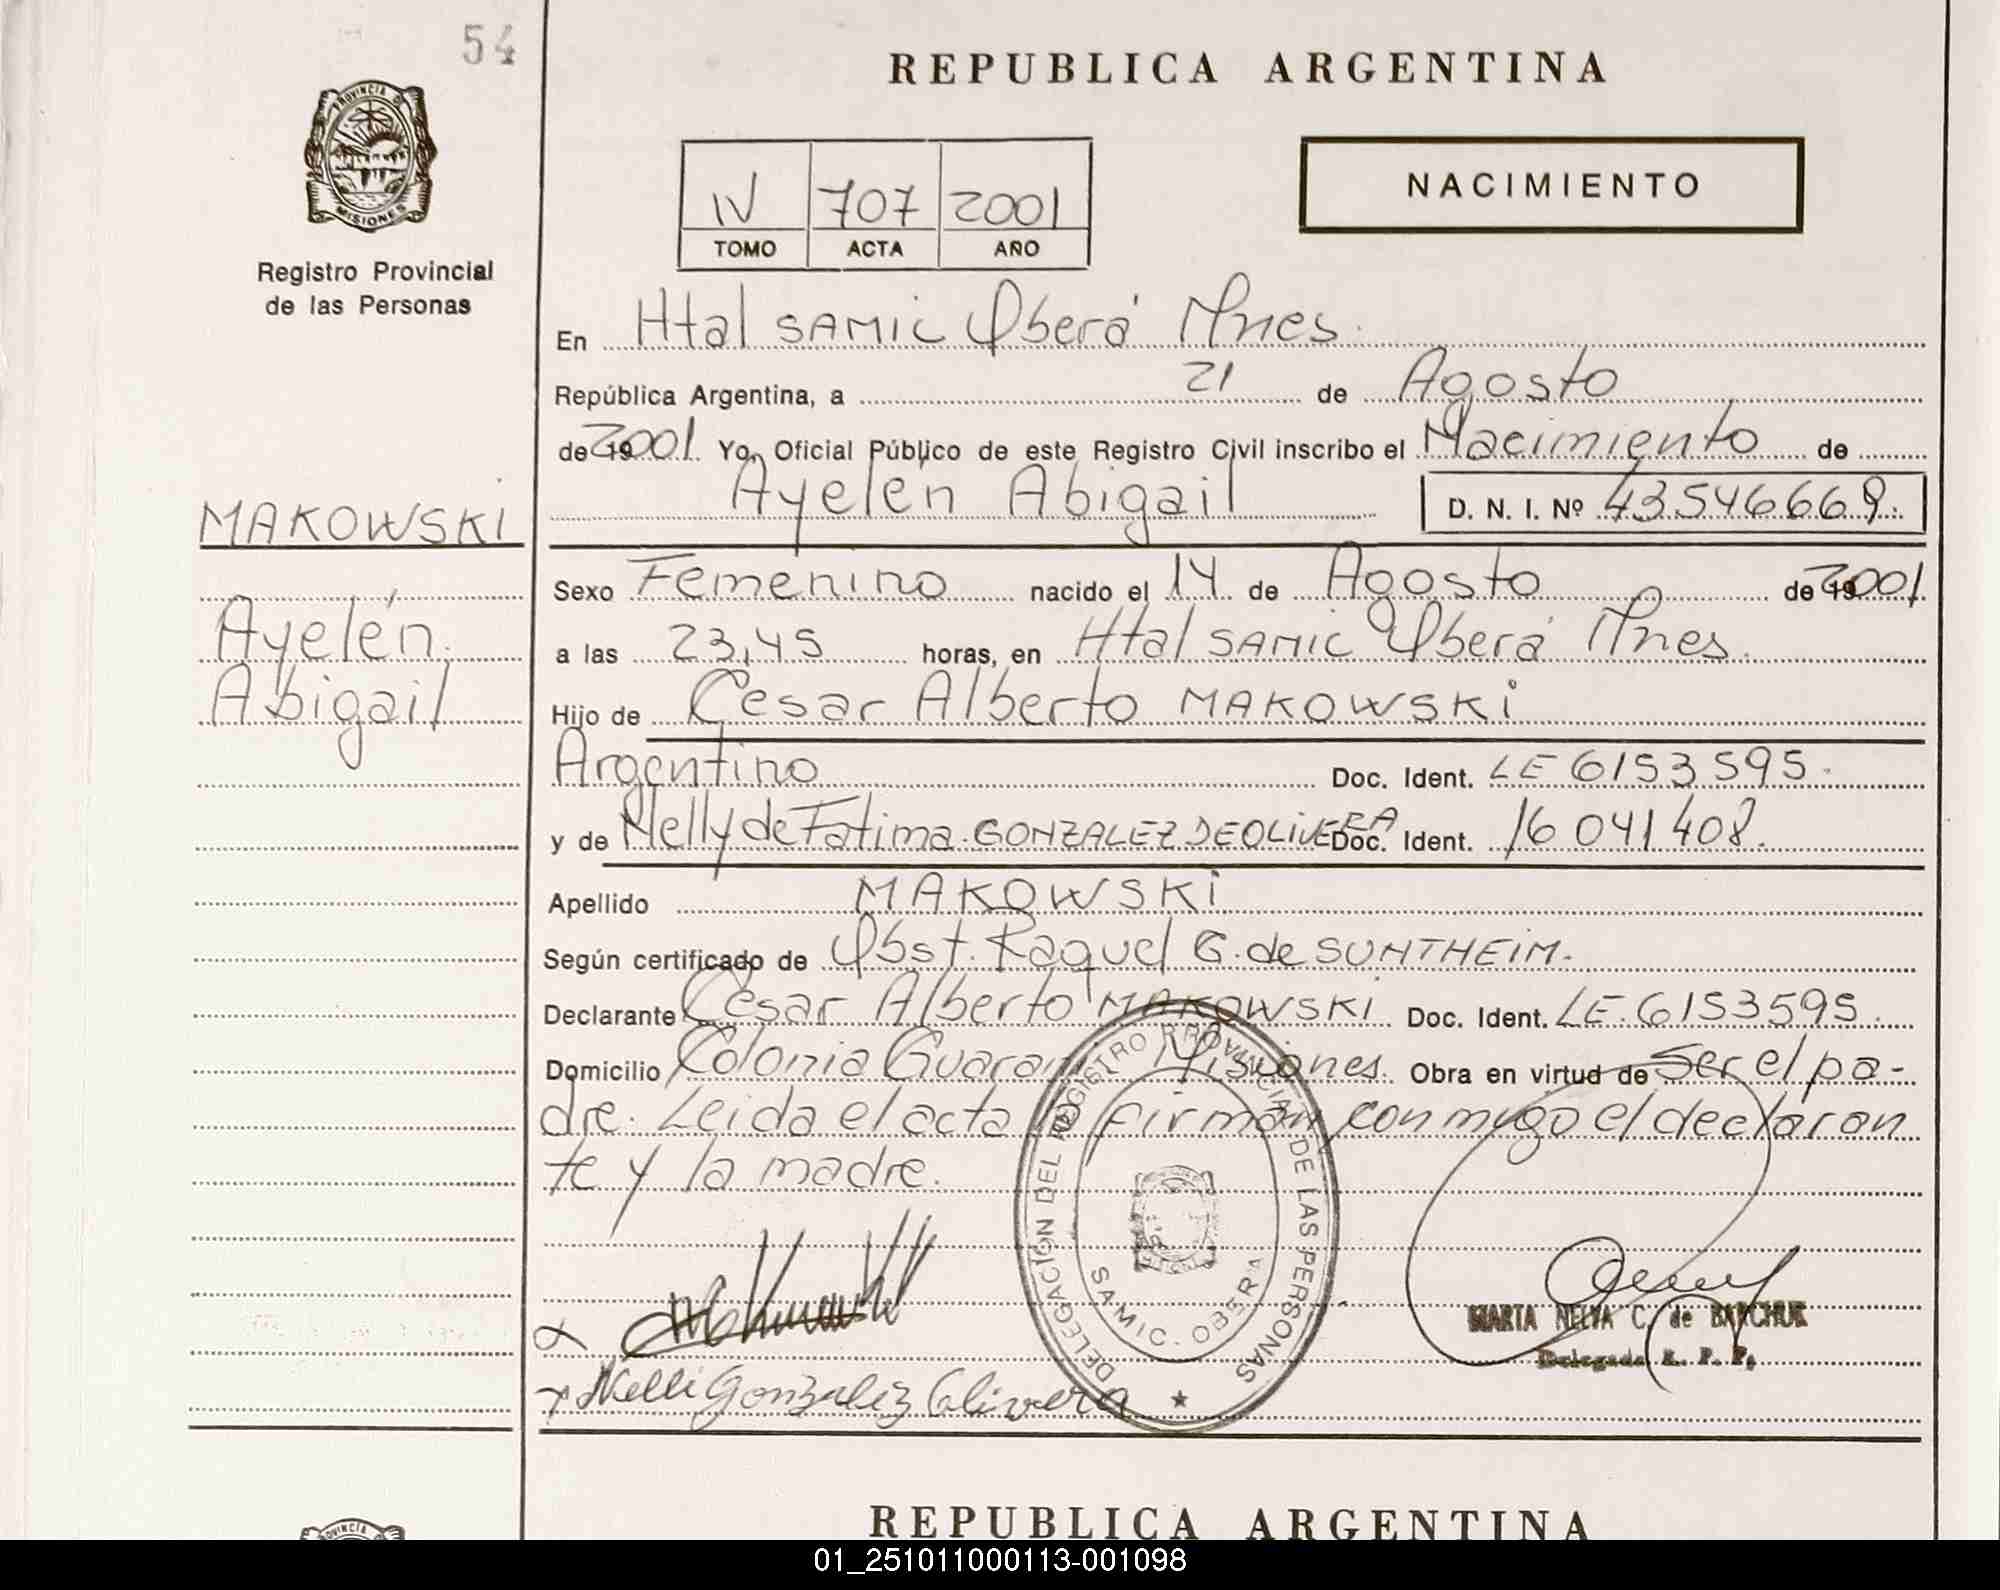 54
REPUBLICA ARGENTINA
PROVINCIA D
MISIONES
Registro Provincial
de las Personas
IV 707 2001
TOMO ACTA AÑO
NACIMIENTO
En Htal SAMIC Oberá Mnes.
República Argentina, a 21 de Agosto
de 19 2001 Yo, Oficial Público de este Registro Civil inscribo el Nacimiento de
Ayelén Abigail D. N. I. Nº 43546669
MAKOWSKI
Ayelén
Abigail
Sexo Femenino nacido el 14 de Agosto de 19 2001
a las 23,45 horas, en Htal SAMIC Oberá Mnes.
Hijo de Cesar Alberto MAKOWSKI
Argentino Doc. Ident. LE 6153595.
y de Nelly de Fatima GONZALEZ DE OLIVERA Doc. Ident. 16 041 408.
Apellido MAKOWSKI
Según certificado de Obst. Raquel G. de SUNTHEIM.
Declarante Cesar Alberto MAKOWSKI Doc. Ident. LE. 6153595.
Domicilio Colonia Guarani Misiones. Obra en virtud de Ser el pa-
dre. Leida el acta la firman conmigo el declaran
te y la madre.
DELEGACIÓN DEL REGISTRO PROVINCIAL DE LAS PERSONAS
SAMIC. OBERA
MARTA NELVA C. de BARCHUK
Delegada R. P. P.
x Nelli Gonzalez Olivera
PROVINCIA
REPUBLICA ARGENTINA
01_251011000113-001098